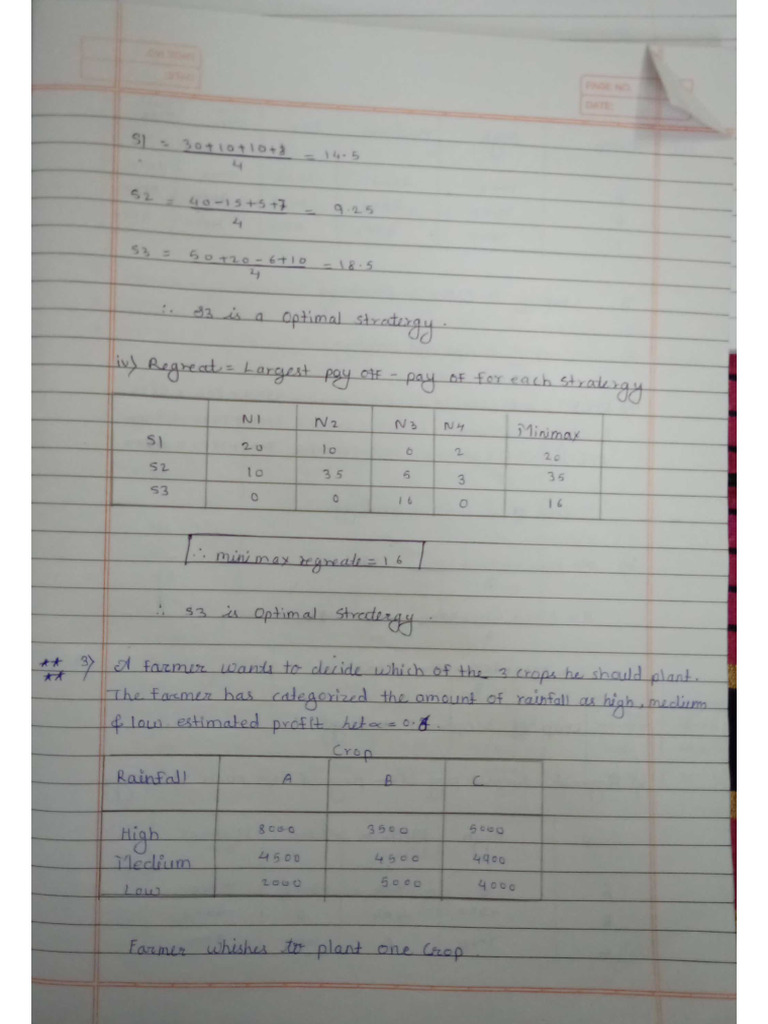 PAGE NO.
DATE:
PAGE NO.
DATE:
S1 = 30+10+10+8 / 4 = 14.5
S2 = 40-15+5+7 / 4 = 9.25
S3 = 50+20-6+10 / 4 = 18.5
∴ S3 is a optimal stratergy.
iv) Regreat = Largest pay off - pay of for each stratergy
N1 N2 N3 N4 Minimax
S1 20 10 0 2 20
S2 10 35 5 3 35
S3 0 0 16 0 16
∴ minimax regreats = 16
∴ S3 is optimal Stretergy.
3) A farmer wants to decide which of the 3 crops he should plant.
The farmer has categorized the amount of rainfall as high, medium
& low estimated profit let α = 0.
Crop
Rainfall A B C
High 8000 3500 5000
Medium 4500 4500 4900
Low 2000 5000 4000
Farmer whishes to plant one crop